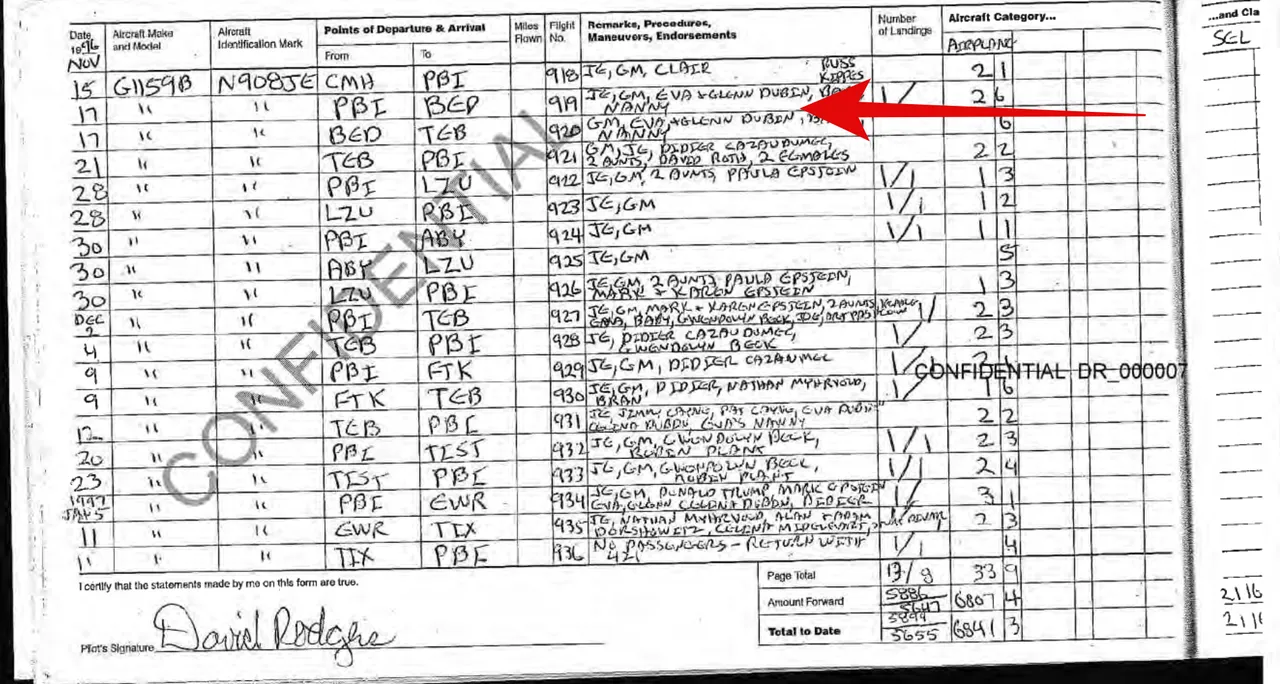 Date 1996 Aircraft Make and Model Aircraft Identification Mark Points of Departure & Arrival Miles Flown Flight No. Remarks, Procedures, Maneuvers, Endorsements Number of Landings Aircraft Category... ...and Cla
NOV From To AIRPLANE SEL
15 G1159B N908JE CMH PBI 918 JE, GM, CLAIR RUSS 2 1
17 " " PBI BED 919 JE, GM, EVA + GLENN DUBIN, 1/ 2 6
NANNY
17 " " BED TEB 920 GM, EVA + GLENN DUBIN, 6
NANNY
21 " " TEB PBI 921 GM, JE, DIDIER CAZAUDUMEC, 2 2
2 AUNTS, DAVID ROTH, 2 FEMALES
28 " " PBI LZU 922 JE, GM, 2 AUNTS, PAULA EPSTEIN 1/1 1 3
28 " " LZU PBI 923 JE, GM 1/1 1 2
30 " " PBI ABY 924 JE, GM 1/1 1 1
30 " " ABY LZU 925 JE, GM 5
30 " " LZU PBI 926 JE, GM, 2 AUNTS, PAULA EPSTEIN, 1 3
MARK + KAREN EPSTEIN
DEC 2 " " PBI TEB 927 JE, GM, MARK + KAREN EPSTEIN, 2 AUNTS, 2 3
EVA, BABY, GWENDOLYN BECK, JOE,
4 " " TEB PBI 928 JE, DIDIER CAZAUDUMEC, 2 3
GWENDOLYN BECK
9 " " PBI FTK 929 JE, GM, DIDIER CAZAUMEC
CONFIDENTIAL DR_000007
9 " " FTK TEB 930 JE, GM, DIDIER, NATHAN MYHRVOLD, 1 6
BRAN
12 " " TEB PBI 931 JE JIMMY CAYNE, PAT CAYNE, EVA DUBIN 2 2
CELINA DUBIN, EVA'S NANNY
20 " " PBI TIST 932 JE, GM, GWENDOLYN BECK, 1/1 2 3
ROBIN PLANT
23 " " TIST PBI 933 JE, GM, GWENDOLYN BECK, 1/1 2 4
ROBIN PLANT
1997 JAN 5 " " PBI EWR 934 JE, GM, DONALD TRUMP, MARK EPSTEIN 3 1
EVA, GLENN CELINA DUBIN, DIDIER
11 " " EWR TIX 935 JE, NATHAN MYHRVOLD, ALAN + ADAM 2 3
DORSHOWITZ, CELINA MIDELFART,
11 " " TIX PBI 936 NO PASSENGERS - RETURN WITH 1/1 4
421
I certify that the statements made by me on this form are true.
Page Total 13/9 33 9
Amount Forward 5886 5647 6807 4 2116
Total to Date 5899 5655 6841 3 2116
Pilot's Signature David Rodgers
CONFIDENTIAL